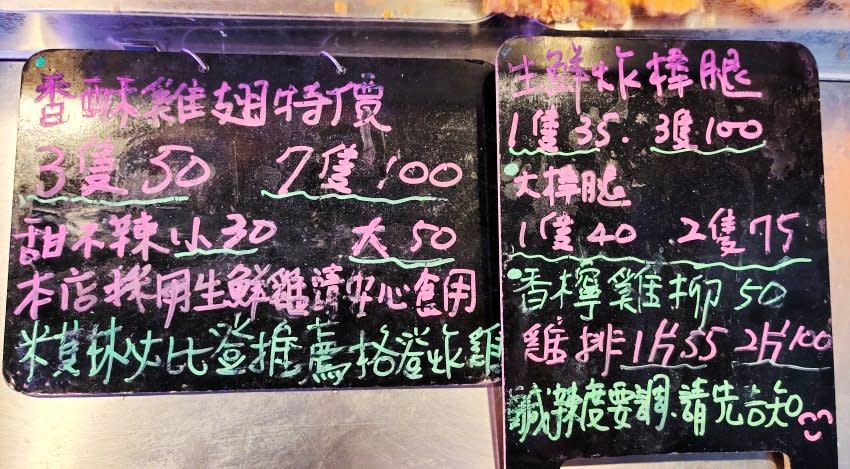 香酥雞翅特價
3隻50 7隻100
甜不辣小30 大50
本店採用生鮮雞請安心食用
米其林必比登推薦格登炸雞
生鮮炸棒腿
1隻35. 3隻100
大棒腿
1隻40 2隻75
香檸雞柳50
雞排1片55 2片100
鹹辣度要調.請先告知